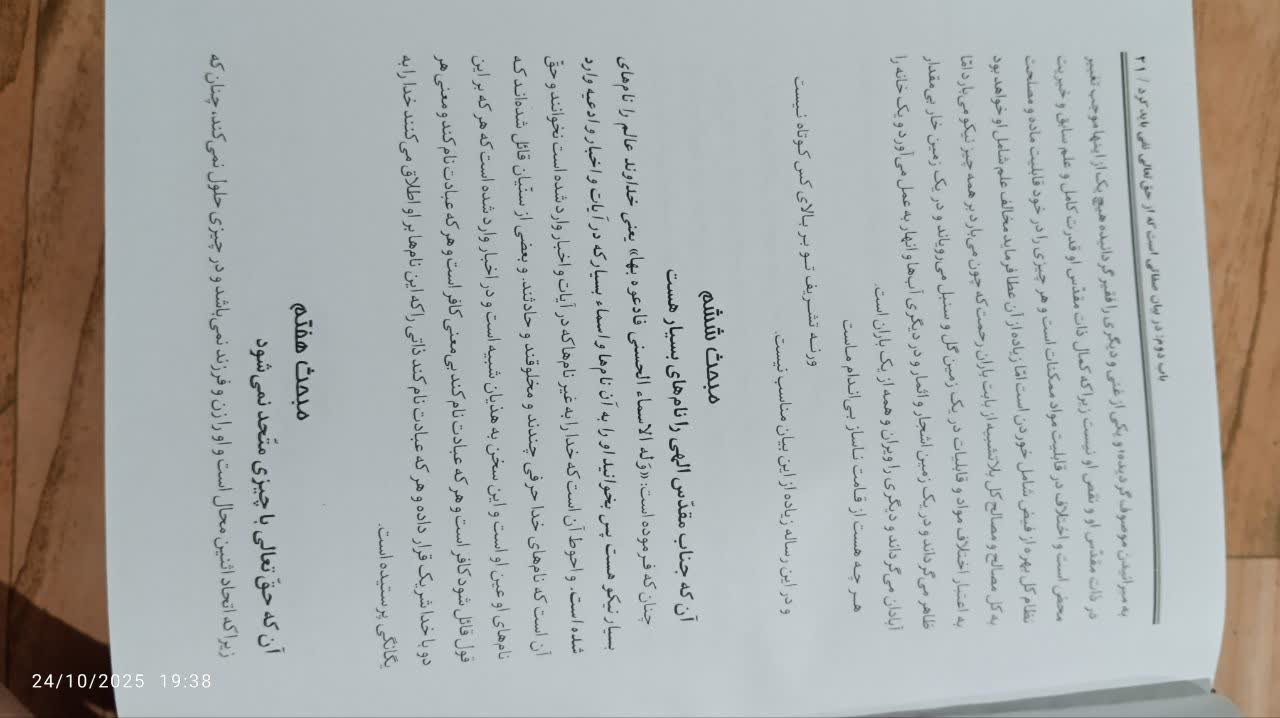 باب دوم: در بیان صفاتی است که از حق تعالی نفی باید کرد / ۳۱
به میراندن موصوف گردیده و یکی از غنی و دیگری را فقیر گردانیده هیچ یک از اینها موجب تغییر
در ذات مقدّس او و نقص او نیست زیرا که کمال ذات مقدّس او قدرت کامل و علم سابق و خیریت
محض است و اختلاف در قابلیت مواد ممکنات است و هر چیزی را در خود قابلیت ماده و مصلحت
نظام کل بهره از فیض شامل خوردن است امّا زیاده از آن عطا فرماید مخالف علم شامل او خواهد بود
به کل مصالح و مصالح کل بلاتشبیه از بابت باران رحمت که چون می‌بارد بر همه چیز نیکو می‌بارد امّا
به اعتبار اختلاف مواد و قابلیات در یک زمین گل و سنبل می‌رویاند و در یک زمین خار بی‌مقدار
ظاهر می‌گرداند و در یک زمین اشجار و اثمار و در دیگری آب‌ها و انهار به عمل می‌آورد و یک خانه را
آبادان می‌گرداند و دیگری را ویران و همه از یک باران است.
هر چه هست از قامت ناساز بی‌اندام ماست
ورنه تشریف تو بر بالای کس کوتاه نیست
و در این رساله زیاده از این بیان مناسب نیست.
مبحث ششم
آن که جناب مقدّس الهی را نام‌های بسیار هست
چنان که فرموده است: «وَله الاسماء الحسنی فادعوه بها» یعنی خداوند عالم را نام‌های
بسیار نیکو هست پس بخوانید او را به آن نام‌ها و اسماء بسیار که در آیات و اخبار و ادعیه وارد
شده است. و احوط آن است که خدا را به غیر نام‌ها که در آیات و اخبار وارد شده است نخوانند و حقّ
آن است که نام‌های خدا حرفی چندند و مخلوقند و حادثند و بعضی از سنّیان قائل شده‌اند که
نام‌های او عین او است و این سخن به هذیان شبیه است و در اخبار وارد شده است که هر که بر این
قول قائل شود کافر است و هر که عبادت نام کند بی معنی کافر است و هر که عبادت نام کند و معنی هر
دو با خدا شریک قرار داده و هر که عبادت نام کند ذاتی را که این نام‌ها بر او اطلاق می‌کنند خدا را به
یگانگی پرستیده است.
مبحث هفتم
آن که حقّ تعالی با چیزی متّحد نمی‌شود
زیرا که اتحاد اثنین محال است و او را زن و فرزند نمی‌باشد و در چیزی حلول نمی‌کند، چنان که
24/10/2025 19:38